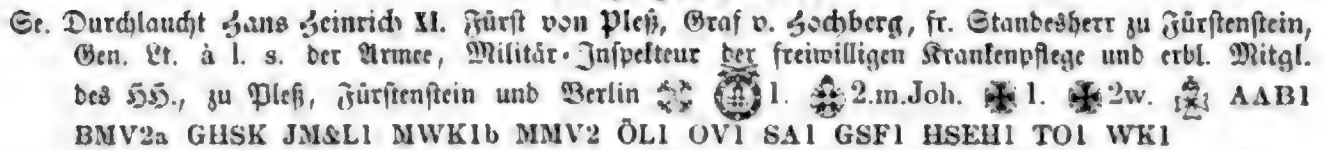 Se. Durchlaucht Hans Heinrich XI. Fürst von Pleß, Graf v. Hochberg, fr. Standesherr zu Fürstenstein,
Gen. Lt. à l. s. der Armee, Militär-Inspekteur der freiwilligen Krankenpflege und erbl. Mitgl.
des HH., zu Pleß, Fürstenstein und Berlin 1. 2.m.Joh. 1. 2w. AAB1
BMV2a GHSK JM&L1 MWK1b MMV2 ÖL1 OV1 SA1 GSF1 HSEH1 TO1 WK1